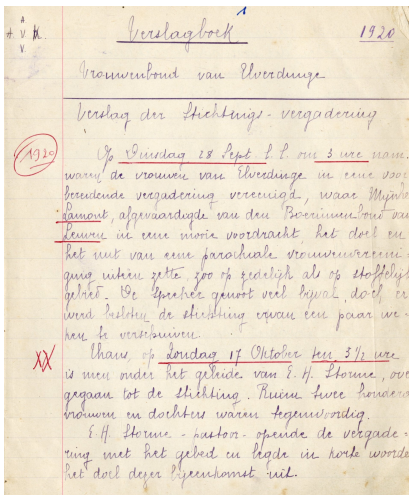 1
A
+ V K.
V
Verslagboek 1920
Vrouwenbond van Elverdinge
Verslag der Stichtings-vergadering
1920
Op Dinsdag 28 Sept. l.l. om 3 ure nam.
waren de vrouwen van Elverdinge in eene voor
bereidende vergadering vereenigd, waar Mijnhe
Lamont, afgevaardigde van den Boerinnenbond van
Leuven in eene mooie voordracht, het doel en
het nut van eene parochiale vrouwenvereeni-
ging uiteen zette, zoo op zedelijk als op stoffelijk
gebied. De spreker genoot veel bijval, doch er
werd besloten de stichting ervan een paar we-
ken te verschuiven.
XX
Thans, op Zondag 17 Oktober ten 3 1/2 ure
is men onder het geleide van E. H. Storme, over
gegaan tot de stichting. Ruim twee honderd
vrouwen en dochters waren tegenwoordig.
E. H. Storme - pastoor - opende de vergade-
ring met het gebed en legde in korte woorde
het doel dezer bijeenkomst uit.